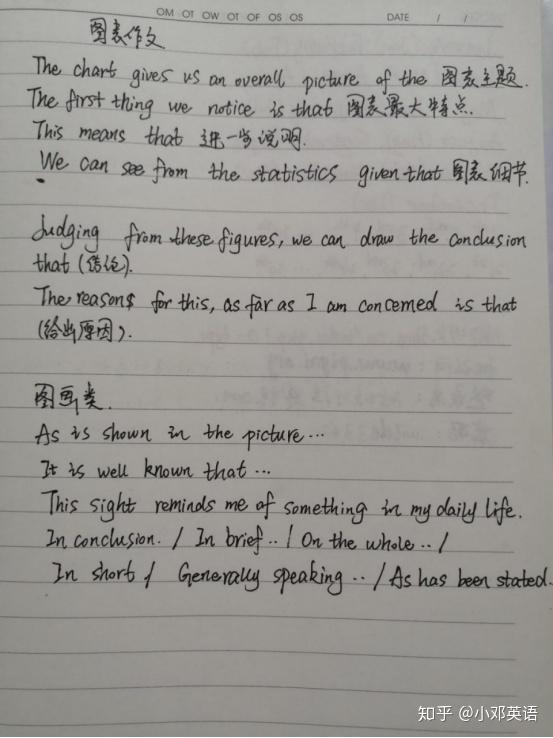 OM OT OW OT OF OS OS DATE / /
图表作文
The chart gives us an overall picture of the 图表主题.
The first thing we notice is that 图表最大特点.
This means that 进一步说明.
We can see from the statistics given that 图表细节.
Judging from these figures, we can draw the conclusion
that (结论).
The reasons for this, as far as I am concerned is that
(给出原因).
图画类.
As is shown in the picture...
It is well known that ...
This sight reminds me of something in my daily life.
In conclusion. / In brief.. / On the whole.. /
In short / Generally speaking .. / As has been stated.
知乎 @小邓英语